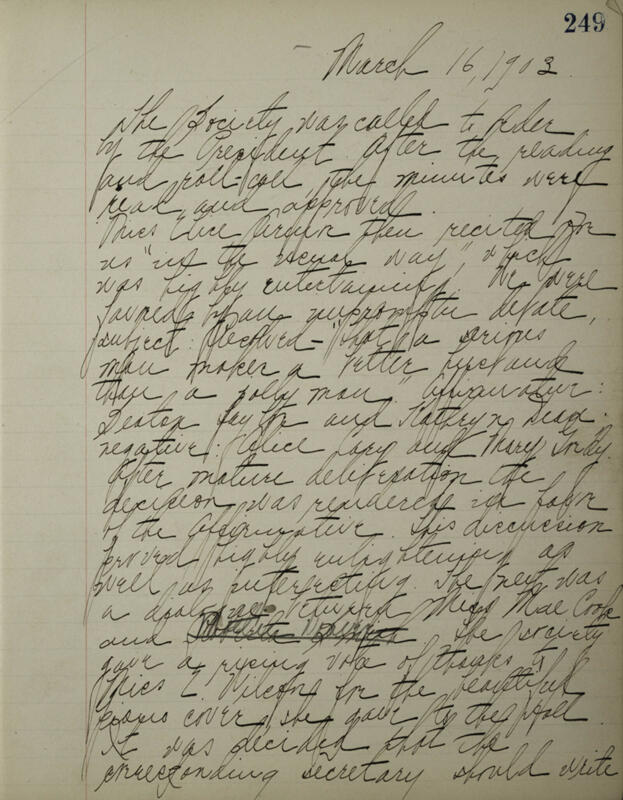 249
March 16, 1903.
The Society was called to order
by the President. After the reading
and roll-call the minutes were
read and approved.
Miss Alice then recited for
us "in the usual way", which
was highly entertaining. We were
favored by an impromptu debate,
subject: Resolved - "That a serious
man makes a better husband
than a jolly man." Affirmative:
Deaton Taylor and Kathryn
negative: Alice Cary and Mary
After mature deliberation the
decision was rendered in favor
of the affirmative. This discussion
proved highly enlightening as
well as interesting. The next was
a dialogue between Miss Mae Cooke
and The Society
gave a rising vote of thanks to
Miss E. Wilcox for the beautiful
piano cover she gave to the Hall
It was decided that the
corresponding secretary should write